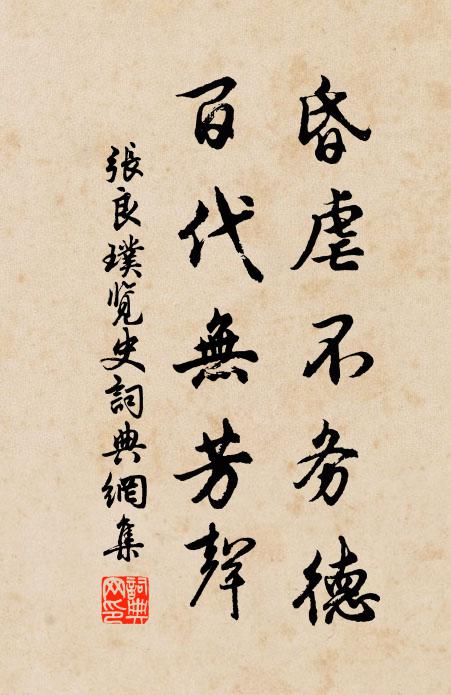 昏虐不务德
百代無芳聲
張良璞覧史詞典網集
詞典
网印